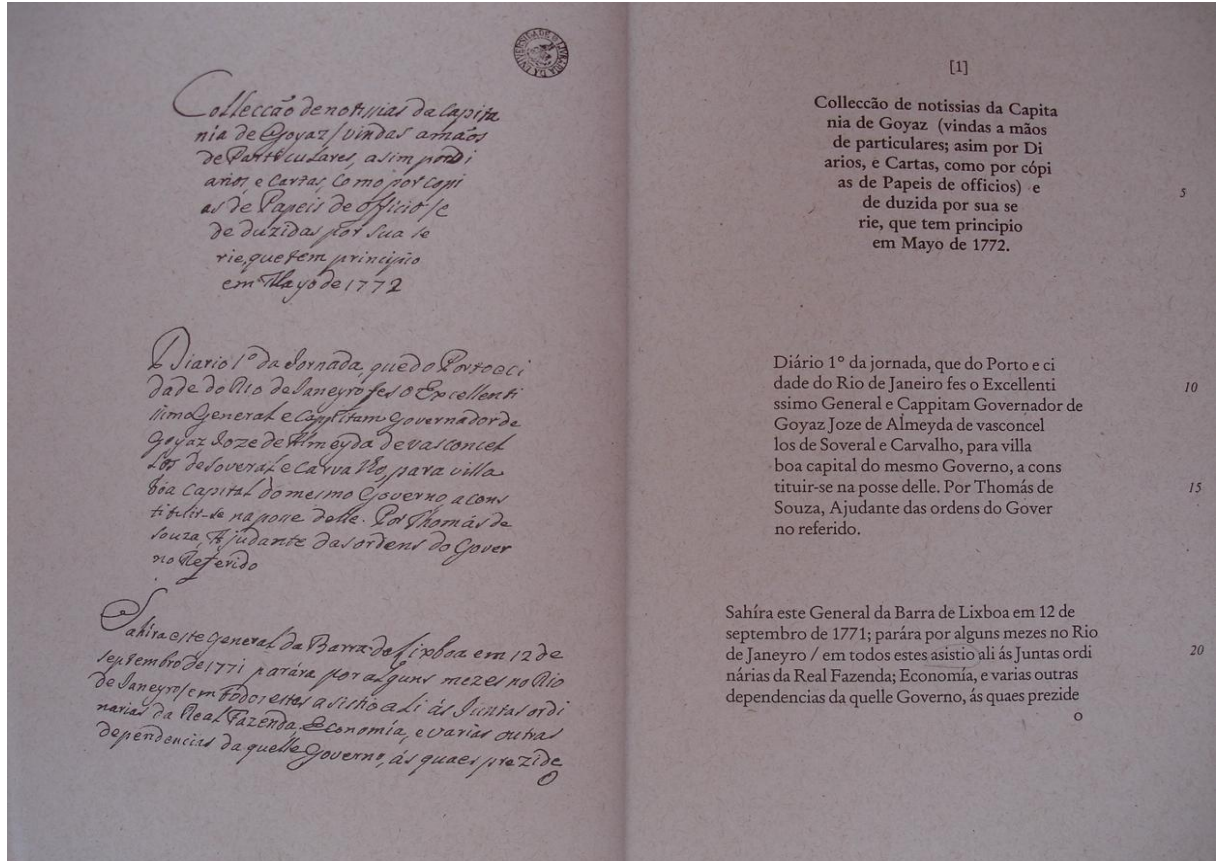 Collecção de notissias da Capita
nia de Goyaz / vindas a mãos
de Particulares, asim por di
arios, e Cartas, como por copi
as de Papeis de officio / e
de duzidas por sua se
rie, que tem principio
em Mayo de 1772
Diario 1º da Jornada, que do Porto e ci
dade do Rio de Janeyro fes o Excellenti
ssimo General e Cappitam Governador de
Goyaz Joze de Almeyda de vasconcel
los de Soveral e Carvalho, para villa
boa Capital do mesmo Governo, a cons
tituir-se na posse delle. Por Thomás de
Souza, Ajudante das ordens do Gover
no Referido
Sahíra este General da Barra de Lixboa em 12 de
septembro de 1771 parára por alguns mezes no Rio
de Janeyro / em todos estes asistio ali ás Juntas ordi
narias da Real Fazenda, Economía, e varias outras
dependencias da quelle Governo, ás quaes prezide
o
[1]
Collecção de notissias da Capita
nia de Goyaz (vindas a mãos
de particulares; asim por Di
arios, e Cartas, como por cópi
as de Papeis de officios) e
5
de duzida por sua se
rie, que tem principio
em Mayo de 1772.
Diário 1º da jornada, que do Porto e ci
dade do Rio de Janeiro fes o Excellenti
10
ssimo General e Cappitam Governador de
Goyaz Joze de Almeyda de vasconcel
los de Soveral e Carvalho, para villa
boa capital do mesmo Governo, a cons
tituir-se na posse delle. Por Thomás de
15
Souza, Ajudante das ordens do Gover
no referido.
Sahíra este General da Barra de Lixboa em 12 de
septembro de 1771; parára por alguns mezes no Rio
de Janeyro / em todos estes asistio ali ás Juntas ordi
20
nárias da Real Fazenda; Economía, e varias outras
dependencias da quelle Governo, ás quaes prezide
o